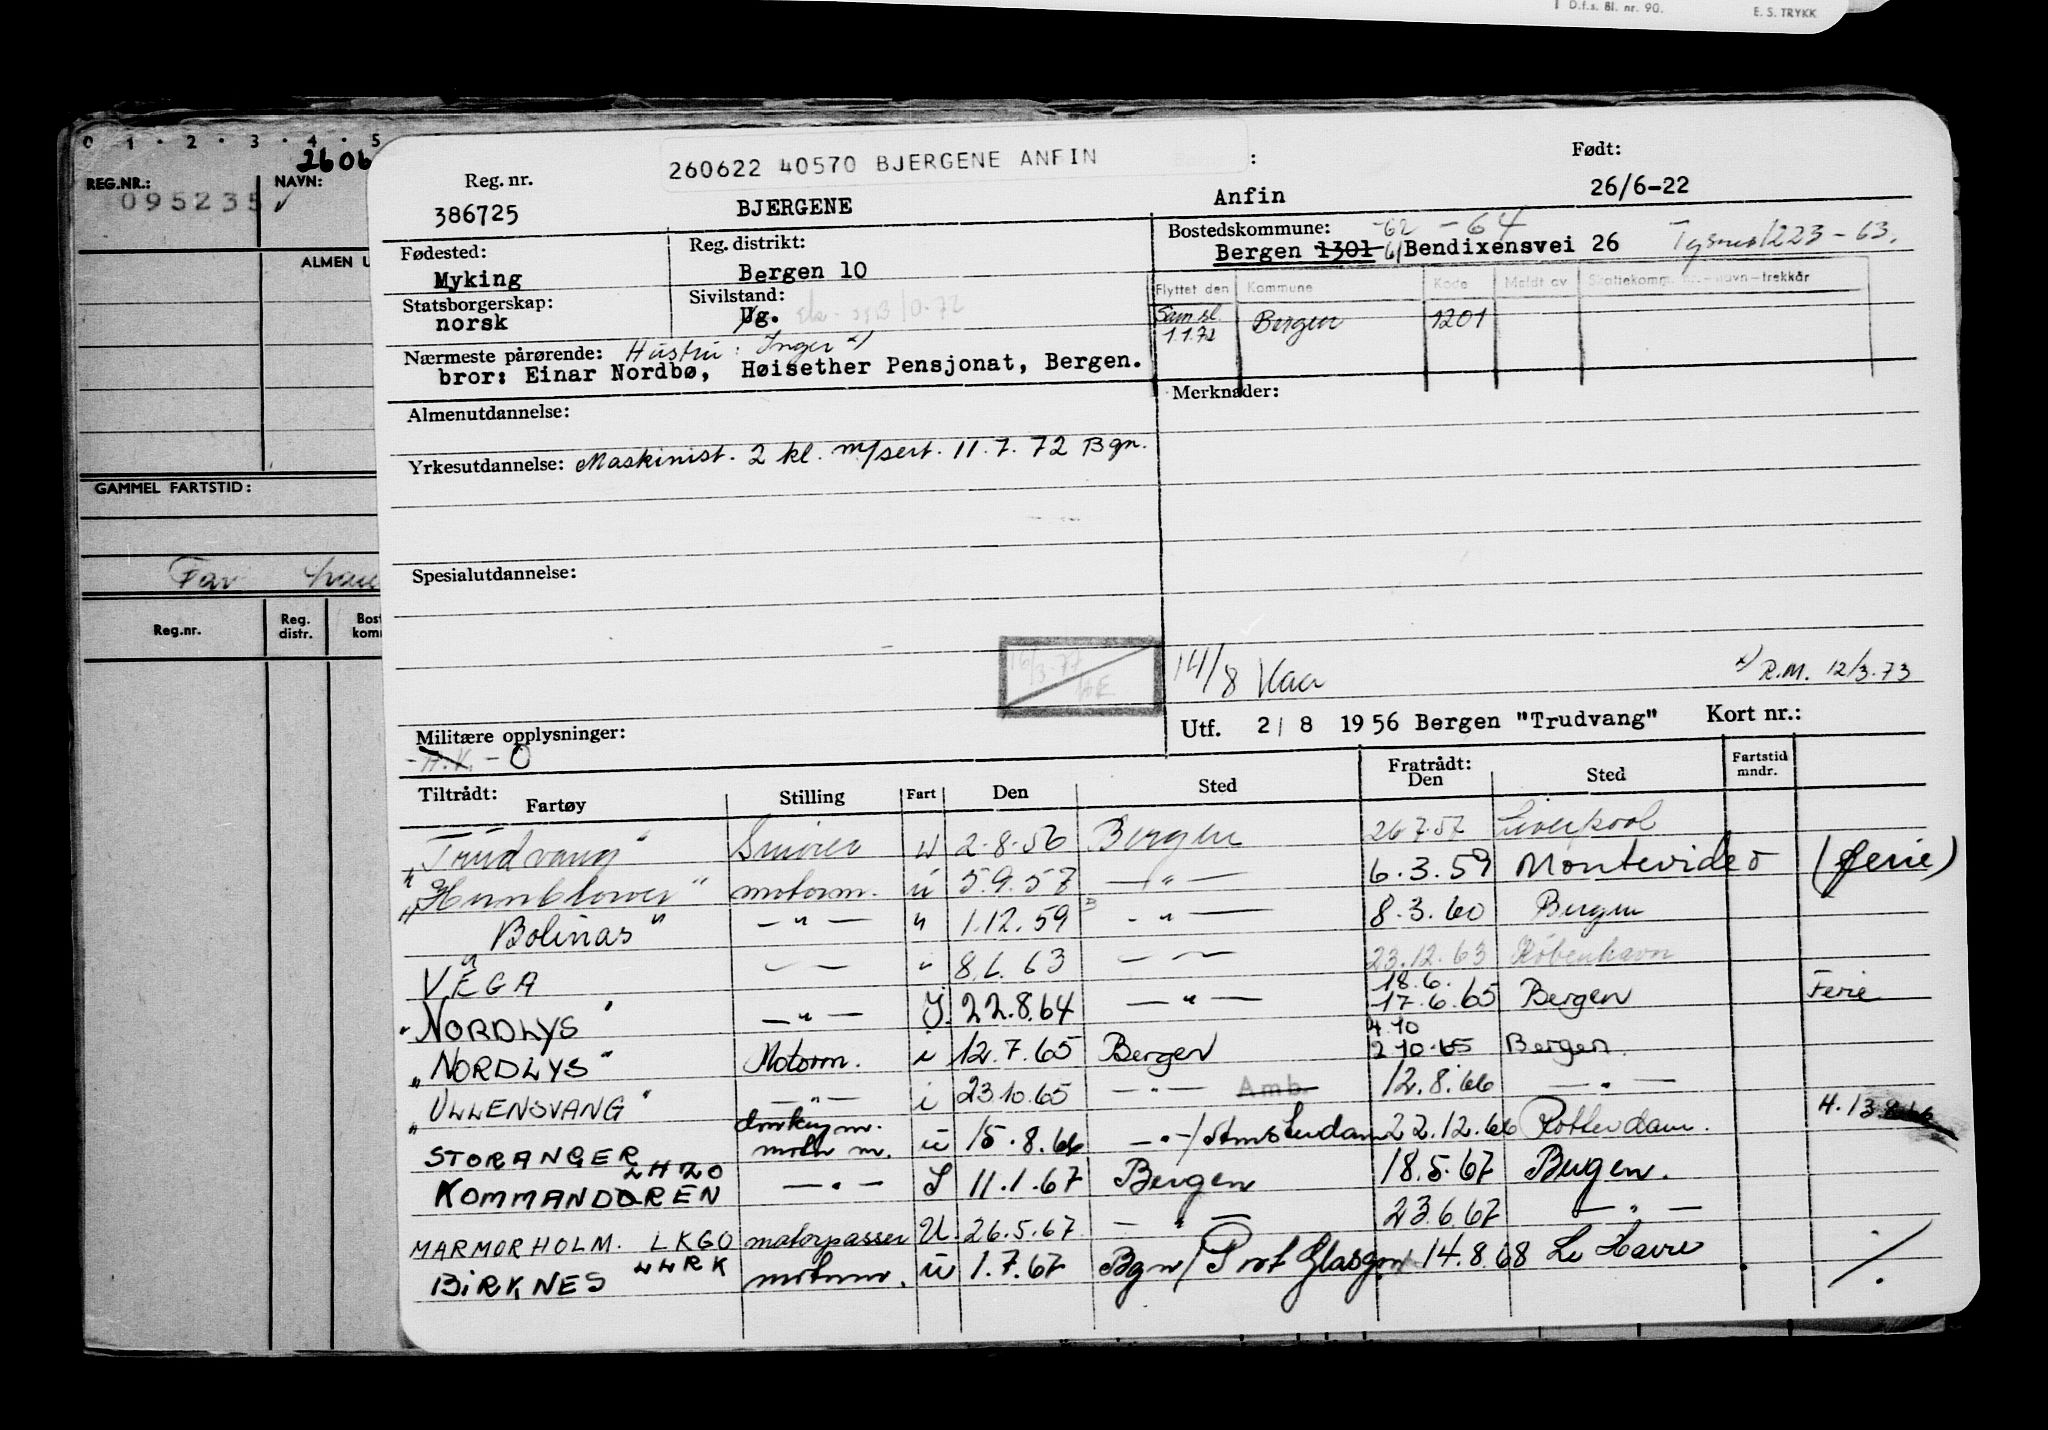 D.f.s. Bl. nr. 90. E. S. TRYKK
0 · 1 · 2 · 3 · 4 · 5
2606
REG.NR.: NAVN:
095235
ALMEN U
GAMMEL FARTSTID:
Far
Reg.nr. Reg. distr. Bost komm
260622 40570 BJERGENE ANFIN :
Reg. nr. Født:
386725 BJERGENE Anfin 26/6-22
Fødested: Reg. distrikt: Bostedskommune: -62 -64
Myking Bergen 10 Bergen 1301 61 Bendixensvei 26 Tysnes 1223-63.
Statsborgerskap: Sivilstand: Flyttet den Kommune Kode Meldt av Skattekomm. nr.-navn-trekkår
norsk Ug. 10-72 Samsl. 1.1.72 Bergen 1201
Nærmeste pårørende: Hustru: Inger x)
bror: Einar Nordbø, Høisether Pensjonat, Bergen.
Almenutdannelse: Merknader:
Yrkesutdannelse: Maskinist. 2 kl. m/sert. 11.7.72 Bgn.
Spesialutdannelse:
16/3-77
14/8 Kaa x) R.M. 12/3.73
Militære opplysninger: Utf. 2/ 8 1956 Bergen "Trudvang" Kort nr.:
-H.V.- O
Tiltrådt: Fartøy Stilling Fart Den Sted Fratrådt: Den Sted Fartstid mndr.
"Trudvang" Smører U 2.8.56 Bergen 26.7.57 Liverpool
"Humblower" motorm. u 5.9.57 — " — 6.3.59 Montevideo (ferie)
"Bolinas" — " — " 1.12.59 - " — 8.3.60 Bergen
VEGA — — " 8.6.63 — — 23.12.63 København
"NORDLYS" — " — I. 22.8.64 — " — 18.6. 17.6.65 Bergen Ferie
"NORDLYS" Motorm. i 12.7.65 Bergen 4.10 2.10.65 Bergen.
"ULLENSVANG" — " — i 23.10.65 — " — Amb. 12.8.66 — " —
STORANGER donkeym. motorm. u 15.8.66 — " —/Amsterdam 22.12.66 Rotterdam. H.13.8.66
KOMMANDØREN LHZO — " — I 11.1.67 Bergen 18.5.67 Bergen.
MARMORHOLM. LKGO motorpasser U. 26.5.67. — " — 23.6.67 — " —
BIRKNES LLRK motorm. u 1.7.67 Bgn/Port Glasgow 14.8.68 Le Havre ./.